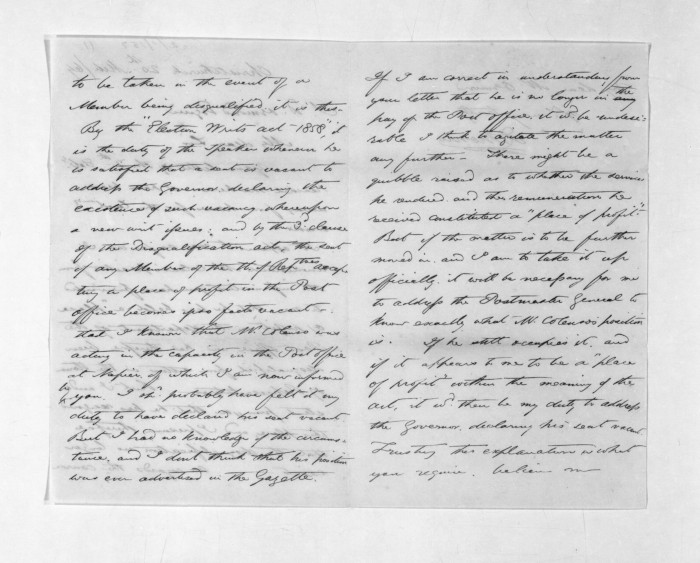 to be taken in the event of a
Member being disqualified it is this.
By the "Election Writs Act 1858" it
is the duty of the Speaker whenever he
is satisfied that a seat is vacant to
address the Governor declaring the
existence of such vacancy, whereupon
a new writ issues, and by the 3d clause
of the Disqualification Act, the seat
of any Member of the H. of Reptves accep-
ting a place of profit in the Post
office becomes ipso facto vacant.
Had I known that Mr Colenso was
acting in the capacity in the Post Office
at Napier, of which I am now informed
by you, I shd probably have felt it my
duty to have declared his seat vacant
But I had no knowledge of the circums-
tance, and I don't think that his position
was ever advertised in the Gazette.
If I am correct in understanding from
your letter that he is no longer in the
pay of the Post office, it wd be undesi-
rable I think to agitate the matter
any further – There might be a
quibble raised as to whether the services
he rendered and the remuneration he
received constituted a "place of profit".
But if the matter is to be further
moved in, and I am to take it up
officially, it will be necessary for me
to address the Postmaster General to
know exactly what Mr Colenso's position
is. If he still occupies it, and
if it appears to me to be a "place
of profit" within the meaning of the
act, it wd then be my duty to address
the Governor, declaring his seat vacant
Trusting this explanation is what
you require, believe me